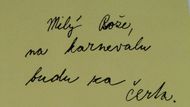 Milý Bože,
na karnevalu
budu za čerta.